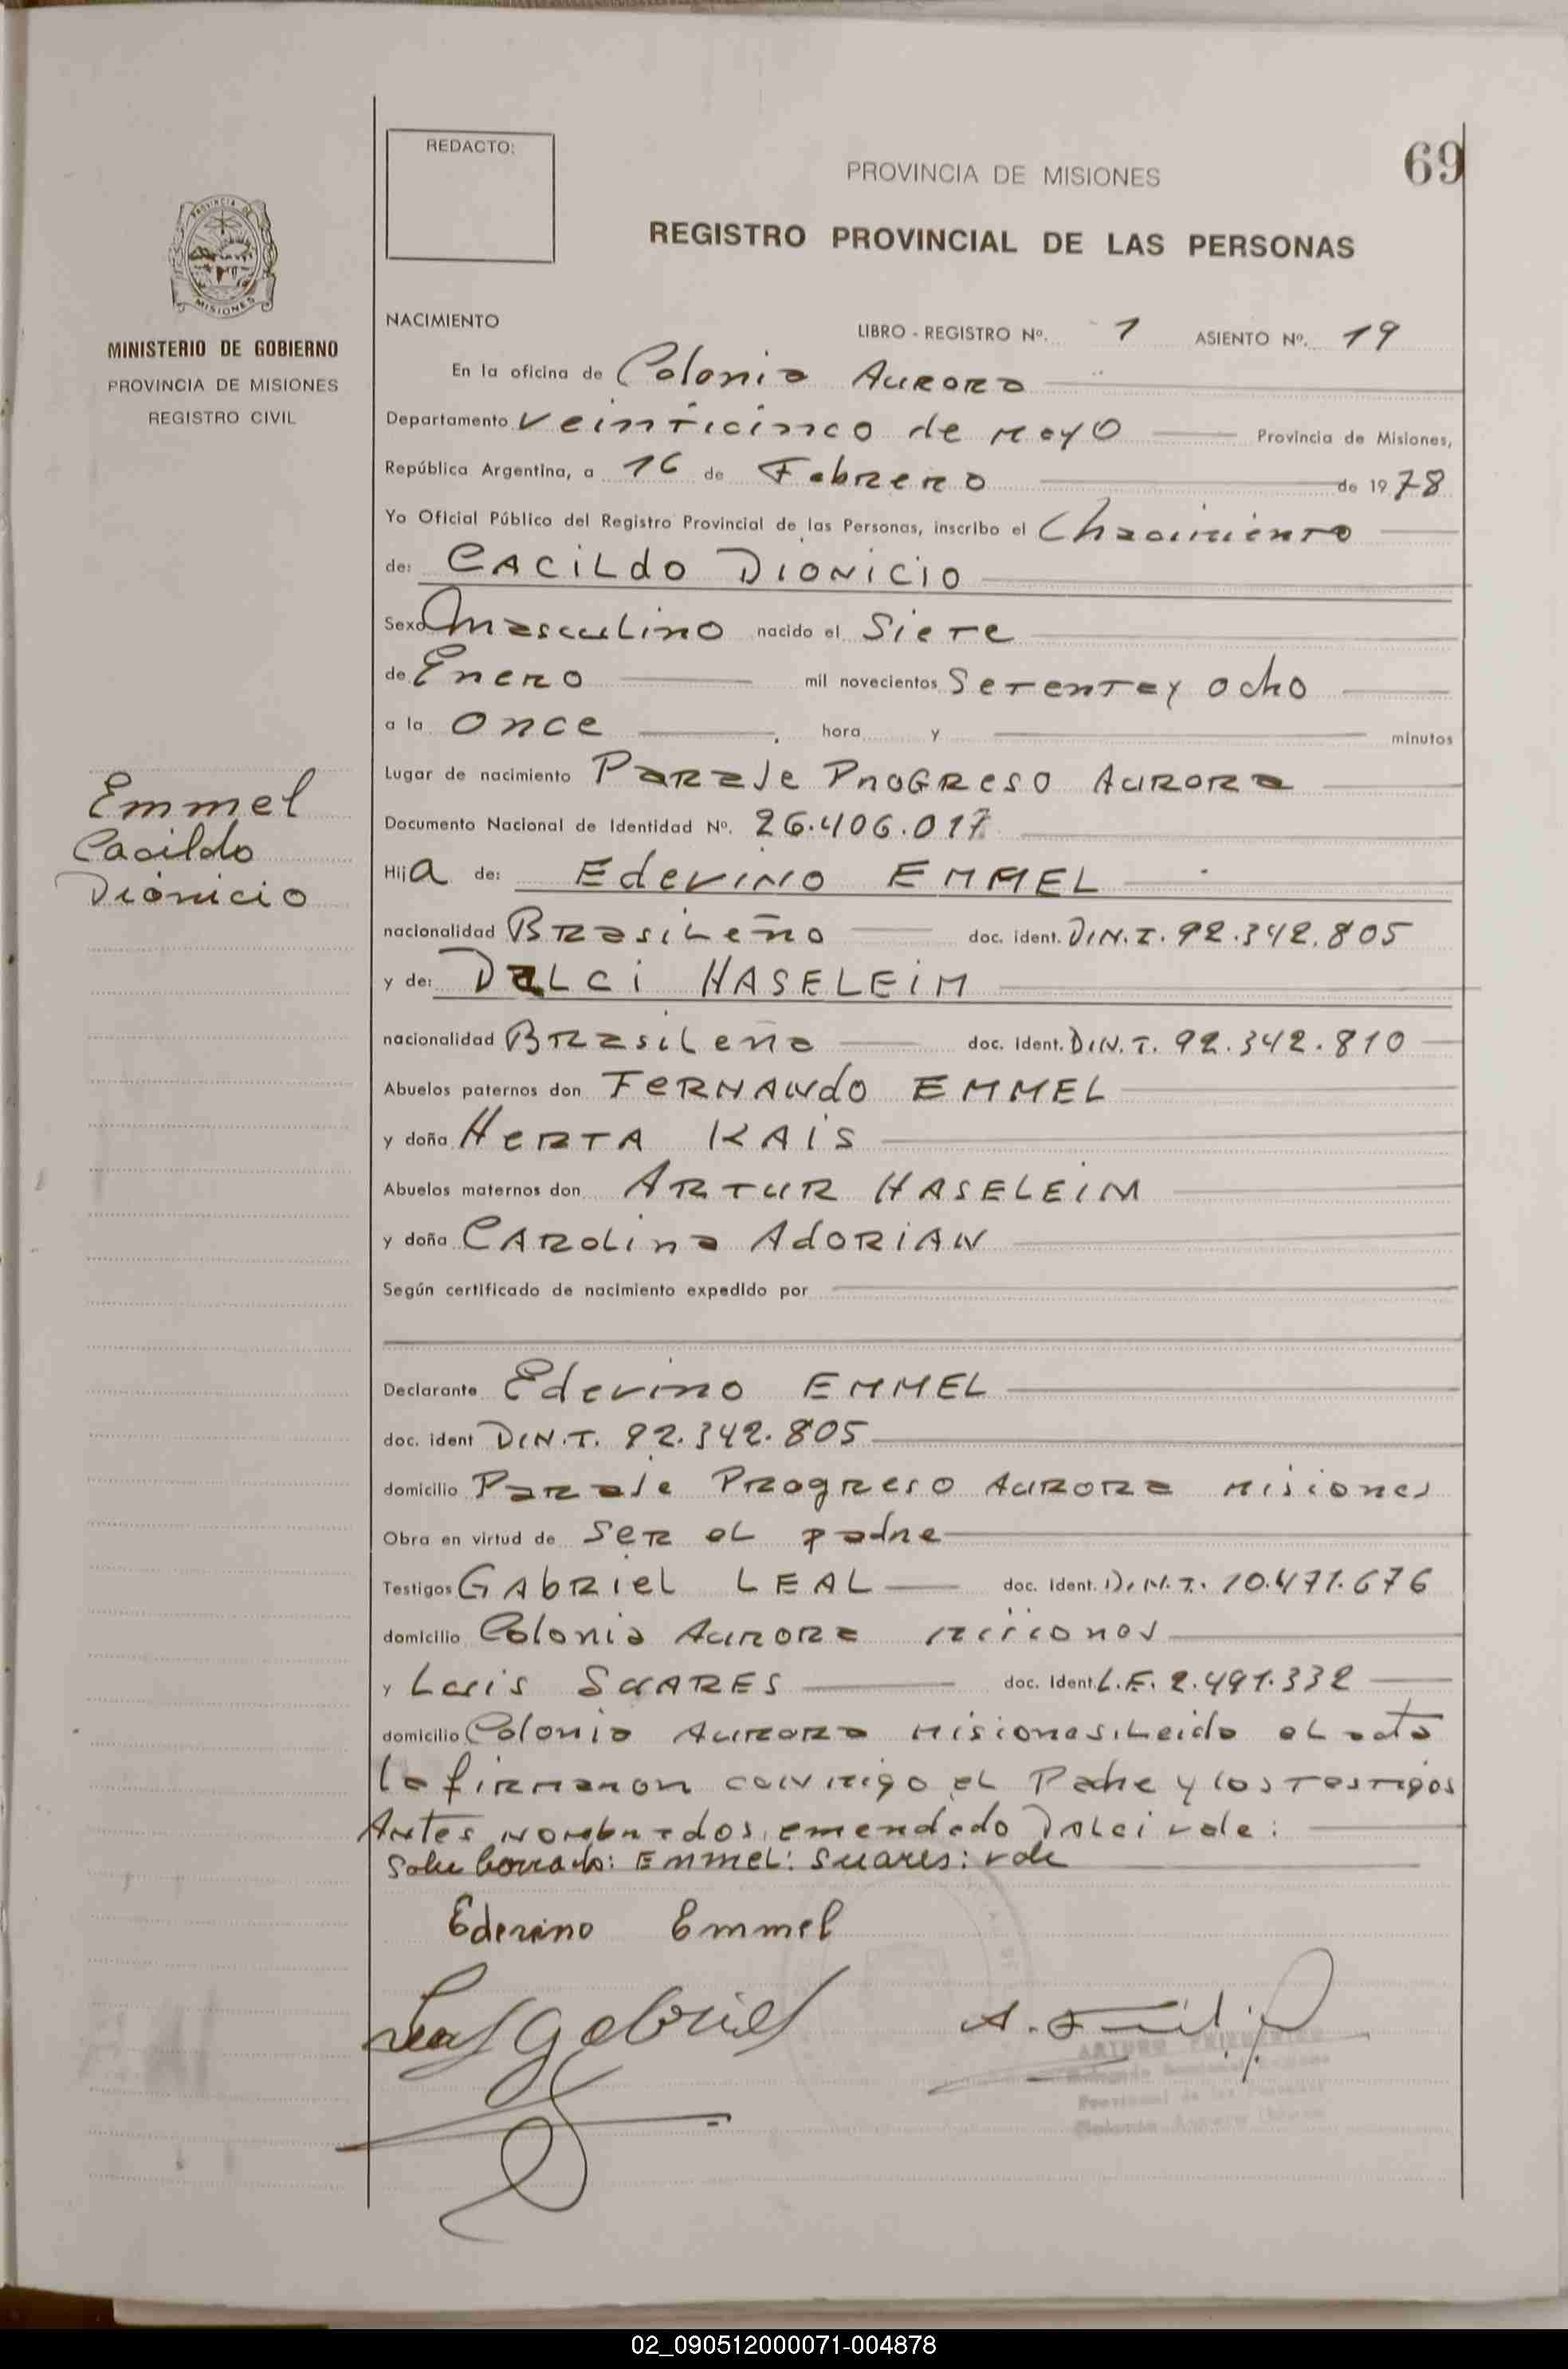 REDACTO:
69
PROVINCIA DE MISIONES
REGISTRO PROVINCIAL DE LAS PERSONAS
PROVINCIA DE
MISIONES
MINISTERIO DE GOBIERNO
PROVINCIA DE MISIONES
REGISTRO CIVIL
NACIMIENTO
LIBRO - REGISTRO Nº. 1 ASIENTO Nº. 19
En la oficina de Colonia AURORA
Departamento Veinticinco de Mayo Provincia de Misiones,
República Argentina, a 16 de Febrero de 1978
Yo Oficial Público del Registro Provincial de las Personas, inscribo el Nacimiento
de: CACILdO DIONICIO
Sexo Masculino nacido el Siete
de Enero mil novecientos Setenta y ocho
a la once hora y minutos
Lugar de nacimiento Paraje Progreso Aurora
Documento Nacional de Identidad Nº. 26.406.017
Emmel
Cacildo
Dionicio
Hija de: Edevino EMMEL
nacionalidad Brasileño doc. ident. D.N.I. 92.342.805
y de: DALCI HASELEIM
nacionalidad Brasileña doc. ident. D.N.I. 92.342.810
Abuelos paternos don FERNANdO EMMEL
y doña HERTA KAIS
Abuelos maternos don ARTUR HASELEIM
y doña CAROLINA AdORIAN
Según certificado de nacimiento expedido por
Declarante Edevino EMMEL
doc. ident D.N.I. 92.342.805
domicilio Paraje Progreso Aurora Misiones
Obra en virtud de ser el padre
Testigos GAbRIEL LEAL doc. ident. D.N.I. 10.471.676
domicilio Colonia Aurora Misiones
y Luis SUARES doc. ident. L.E. 2.491.332
domicilio Colonia Aurora Misiones. Leida el acta
la firmaron conmigo el Padre y los testigos
Antes nombrados. emendado Dalci vale:
Sobre borrado: EMMEL: Suares: vale
Ederino Emmel
Leal Gabriel
ARTURO
02_090512000071-004878